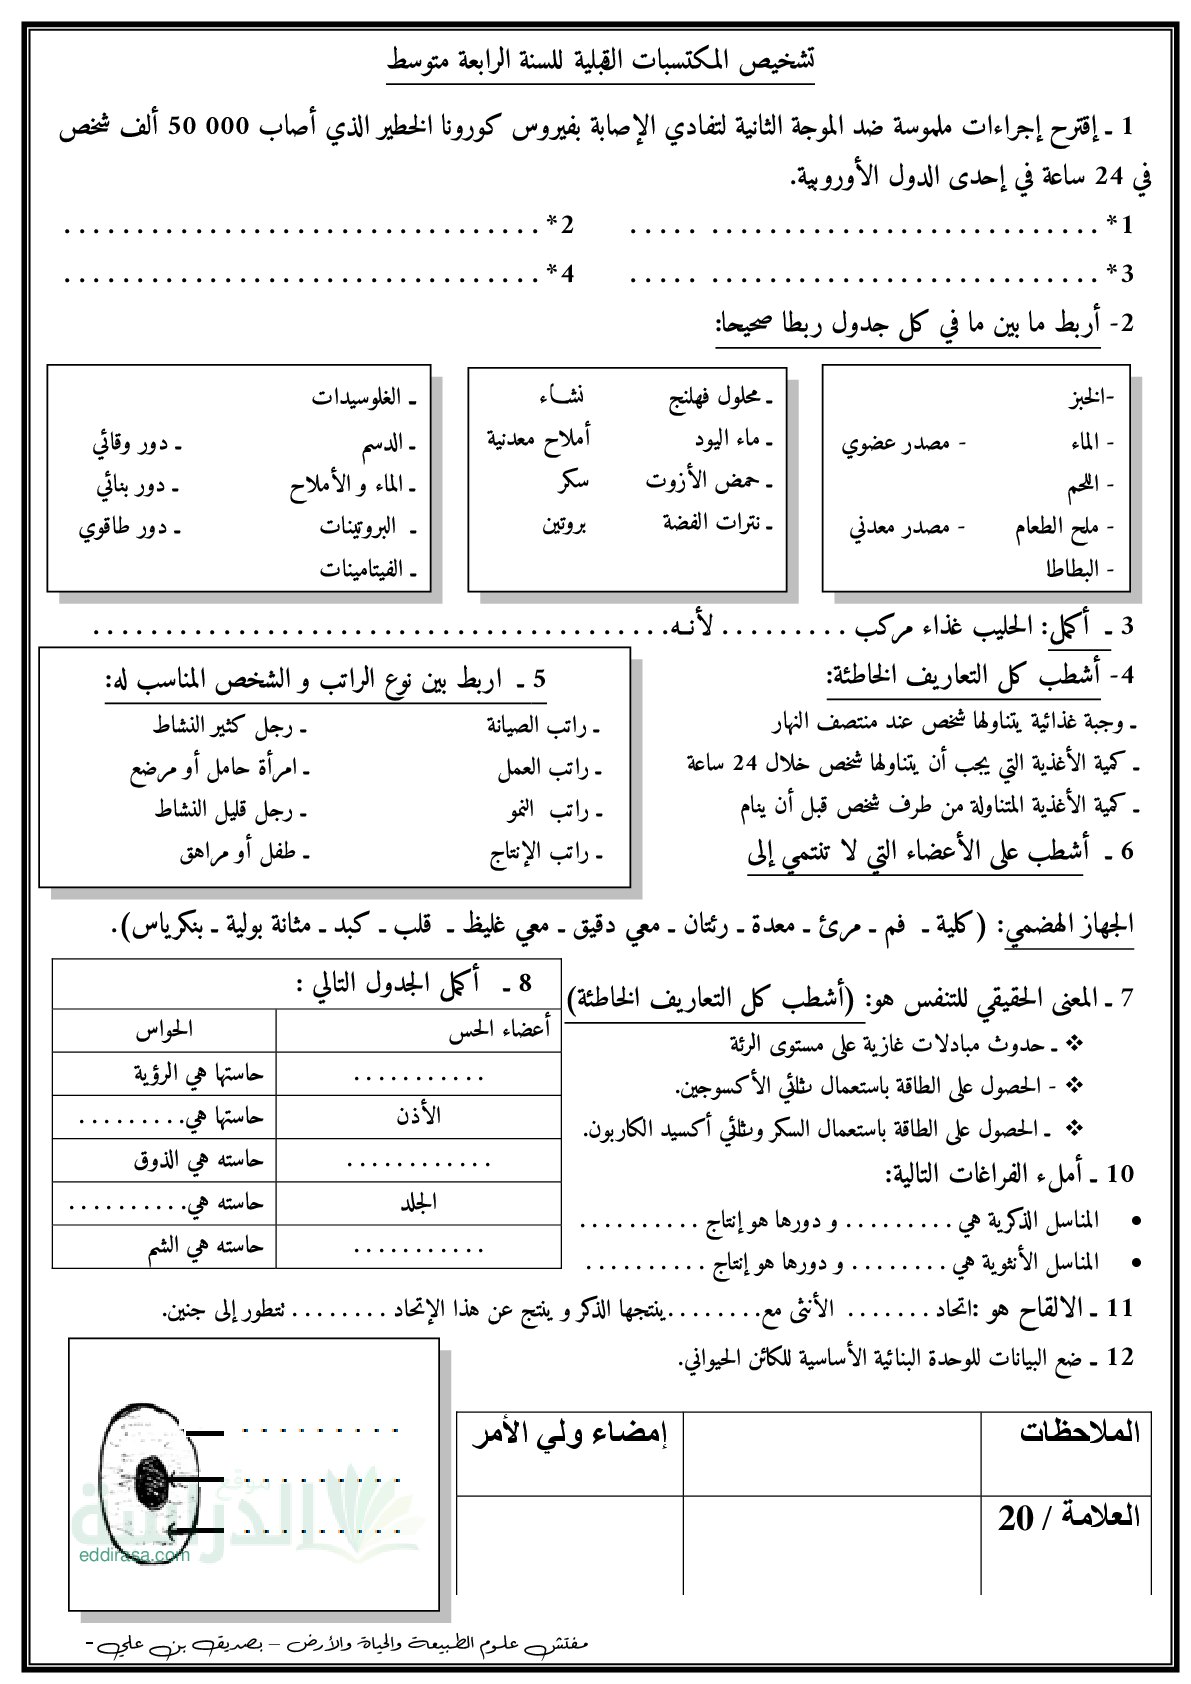 تشخيص المكتسبات القبلية للسنة الرابعة متوسط
1 ـ إقترح إجراءات ملموسة ضد الموجة الثانية لتفادي الإصابة بفيروس كورونا الخطير الذي أصاب 000 50 ألف شخص
في 24 ساعة في إحدى الدول الأوروبية.
1* . . . . . . . . . . . . . . . . . . . . . . . . . . . . . . . . 2* . . . . . . . . . . . . . . . . . . . . . . . . . . . . . . . . .
3* . . . . . . . . . . . . . . . . . . . . . . . . . . . . . . . . 4* . . . . . . . . . . . . . . . . . . . . . . . . . . . . . . . . .
2- أربط ما بين ما في كل جدول ربطا صحيحا:
-الخبز
- الماء - مصدر عضوي
- اللحم
- ملح الطعام - مصدر معدني
- البطاطا
ـ محلول فهلنج نشـاء
ـ ماء اليود أملاح معدنية
ـ حمض الأزوت سكر
ـ نترات الفضة بروتين
ـ الغلوسيدات
ـ الدسم ـ دور وقائي
ـ الماء و الأملاح ـ دور بنائي
ـ البروتينات ـ دور طاقوي
ـ الفيتامينات
3 ـ أكمل: الحليب غذاء مركب . . . . . . . . . لأنـه. . . . . . . . . . . . . . . . . . . . . . . . . . . . . . . . . . . . . . . .
4- أشطب كل التعاريف الخاطئة:
ـ وجبة غذائية يتناولها شخص عند منتصف النهار
ـ كمية الأغذية التي يجب أن يتناولها شخص خلال 24 ساعة
ـ كمية الأغذية المتناولة من طرف شخص قبل أن ينام
5 ـ اربط بين نوع الراتب و الشخص المناسب له:
ـ راتب الصيانة ـ رجل كثير النشاط
ـ راتب العمل ـ امرأة حامل أو مرضع
ـ راتب النمو ـ رجل قليل النشاط
ـ راتب الإنتاج ـ طفل أو مراهق
6 ـ أشطب على الأعضاء التي لا تنتمي إلى
الجهاز الهضمي: (كلية ـ فم ـ مرئ ـ معدة ـ رئتان ـ معي دقيق ـ معي غليظ ـ قلب ـ كبد ـ مثانة بولية ـ بنكرياس).
7 ـ المعنى الحقيقي للتنفس هو: (أشطب كل التعاريف الخاطئة)
❖ ـ حدوث مبادلات غازية على مستوى الرئة
❖ - الحصول على الطاقة باستعمال ثنائي الأكسوجين.
❖ ـ الحصول على الطاقة باستعمال السكر وثنائي أكسيد الكاربون.
8 ـ أكمل الجدول التالي :
أعضاء الحس الحواس
. . . . . . . . . . . حاستها هي الرؤية
الأذن حاستها هي. . . . . . . . .
. . . . . . . . . . . . حاسته هي الذوق
الجلد حاسته هي. . . . . . . . . .
. . . . . . . . . . . حاسته هي الشم
10 ـ أملء الفراغات التالية:
• المناسل الذكرية هي . . . . . . . . . و دورها هو إنتاج . . . . . . . . . .
• المناسل الأنثوية هي . . . . . . . . و دورها هو إنتاج . . . . . . . . . .
11 ـ الالقاح هو :اتحاد . . . . . . . الأنثى مع. . . . . . . .ينتجها الذكر و ينتج عن هذا الإتحاد . . . . . . . . تتطور إلى جنين.
12 ـ ضع البيانات للوحدة البنائية الأساسية للكائن الحيواني.
. . . . . . . . .
. . . . . . . . .
. . . . . . . . .
موقع الدراسة
eddirasa.com
الملاحظات إمضاء ولي الأمر
العلامة / 20
مفتش علوم الطبيعة والحياة والأرض – بصديق بن علي -